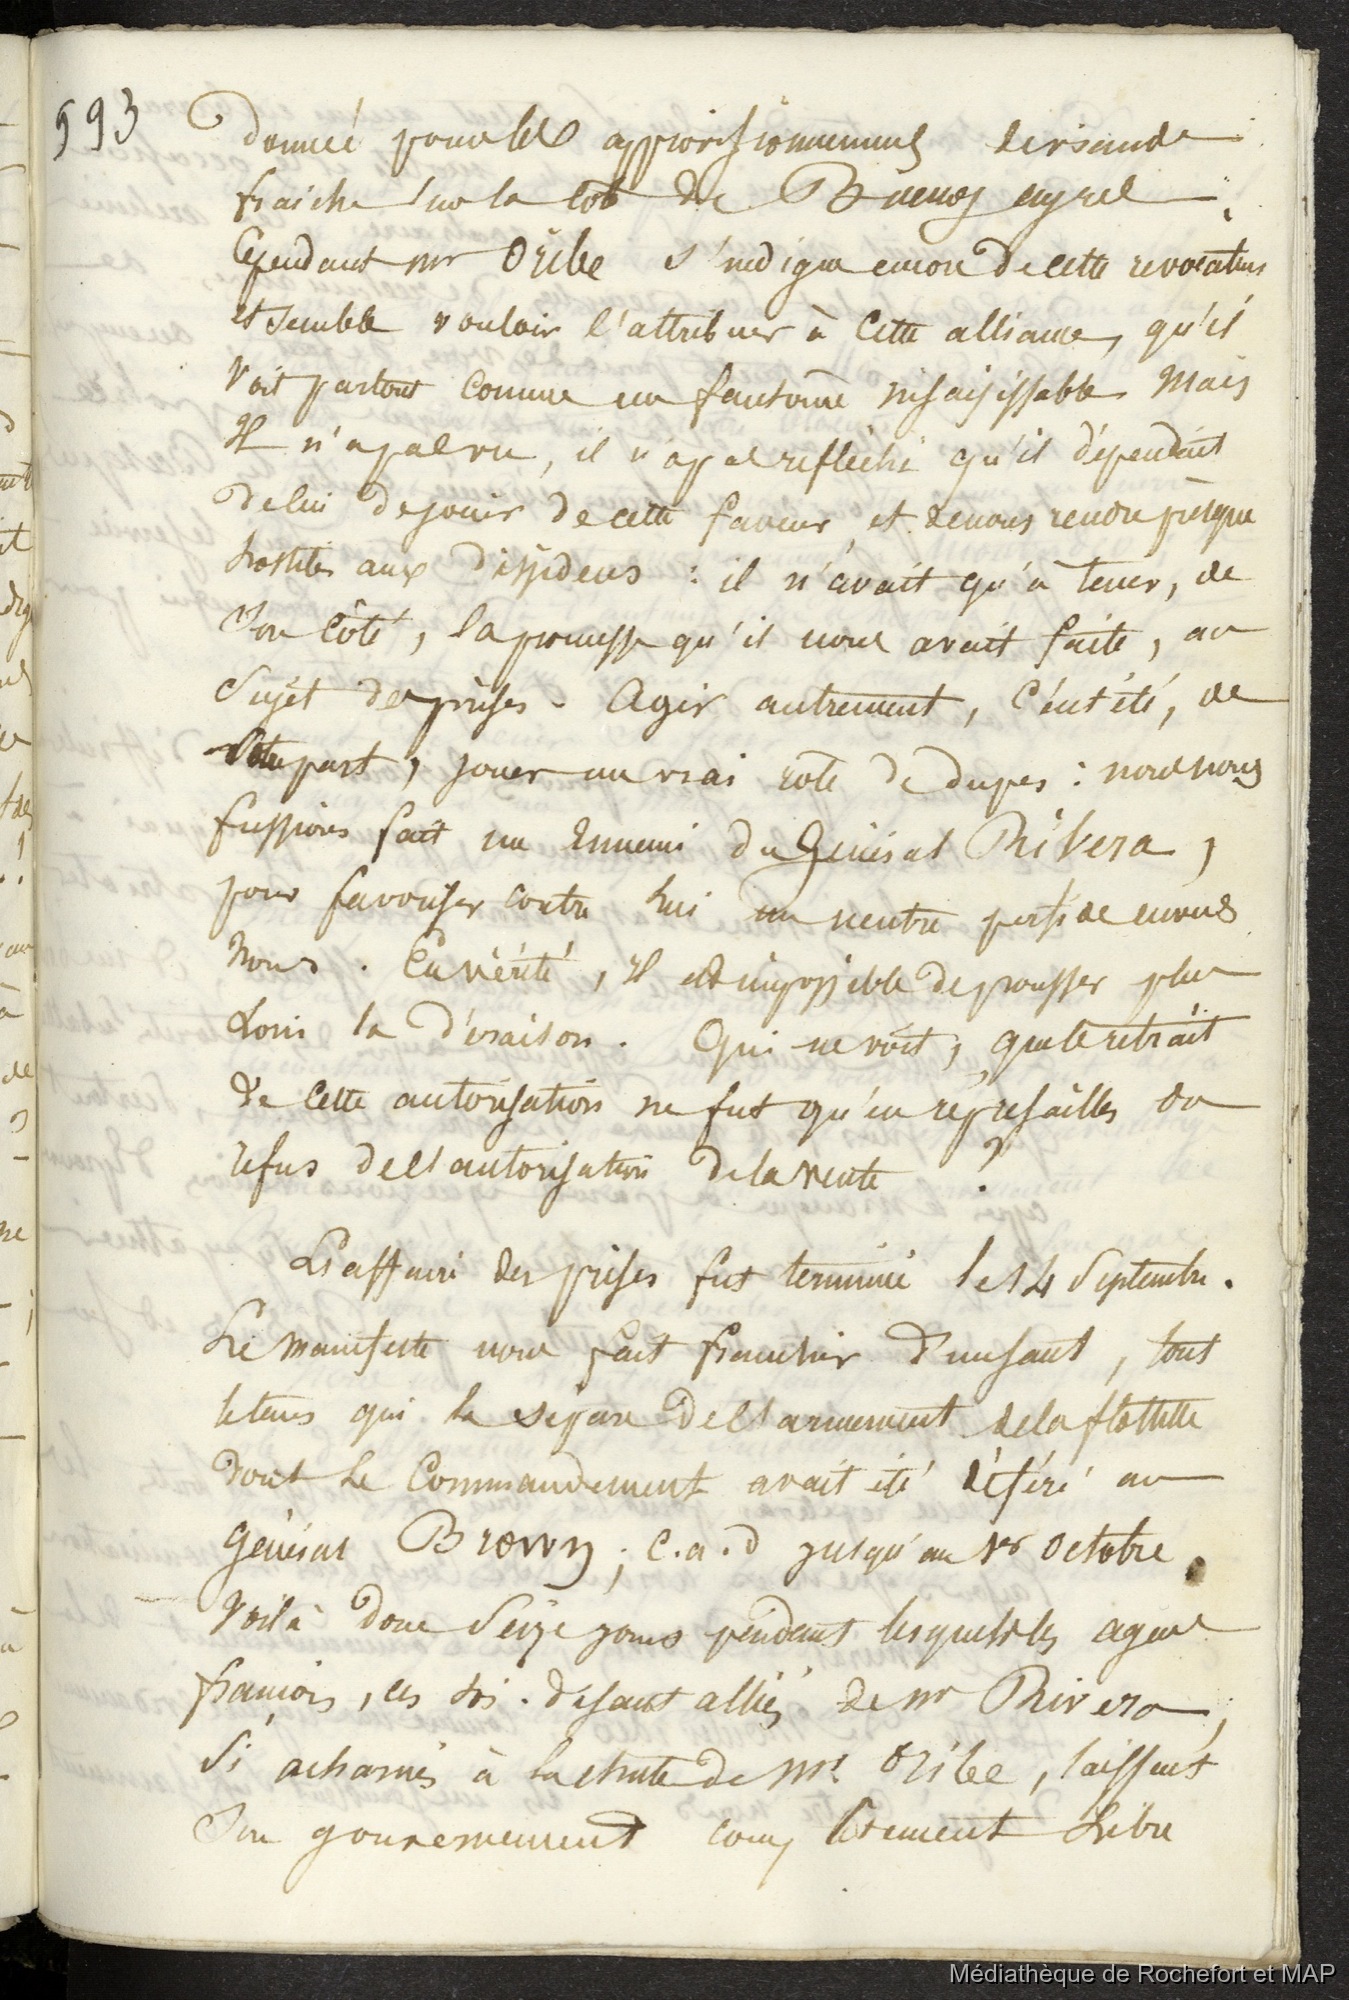 593
donnée pour les approvisionnemens de viande
fraiche sur la côte de Buenos ayres.
Cependant mr Oribe s'indigne encore de cette revocation
et semble vouloir l'attribuer à cette alliance, qu'il
voit partout comme un fantôme insaisissable. Mais
Il n'a pas vu, il n'a pas réfléchi qu'il dépendait
de lui de jouir de cette faveur et de nous rendre presque
hostiles aux dissidens : il n'avait qu'à tenir, de
Son côté, la promesse qu'il nous avait faite, au
Sujet des prises. Agir autrement, c'eut été, de
part, jouer un vrai rôle de dupes : nous nous
fussions fait un Ennemi du Général Rivera,
pour favoriser contre lui un neutre perfide envers
Nous. En vérité, il est impossible de pousser plus
Loin la déraison. Qui ne voit, que le retrait
de cette autorisation ne fut qu'en représailles du
refus de l'autorisation de la vente ?
L'affaire des prises fut terminée le 14 Septembre.
Le manifeste nous fait franchir d'un saut, tout
le tems qui la sépare de l'armement de la flottille
dont le Commandement avait été déféré au
général Brown ; c.a.d jusqu'au 1er Octobre.
Voilà donc Seize jours pendant lesquels les agens
français, ces soi-disant alliés de mr Rivera,
Si acharnés à la chute de Mr. Oribe, laissent
Son gouvernement complètement Libre
Médiathèque de Rochefort et MAP